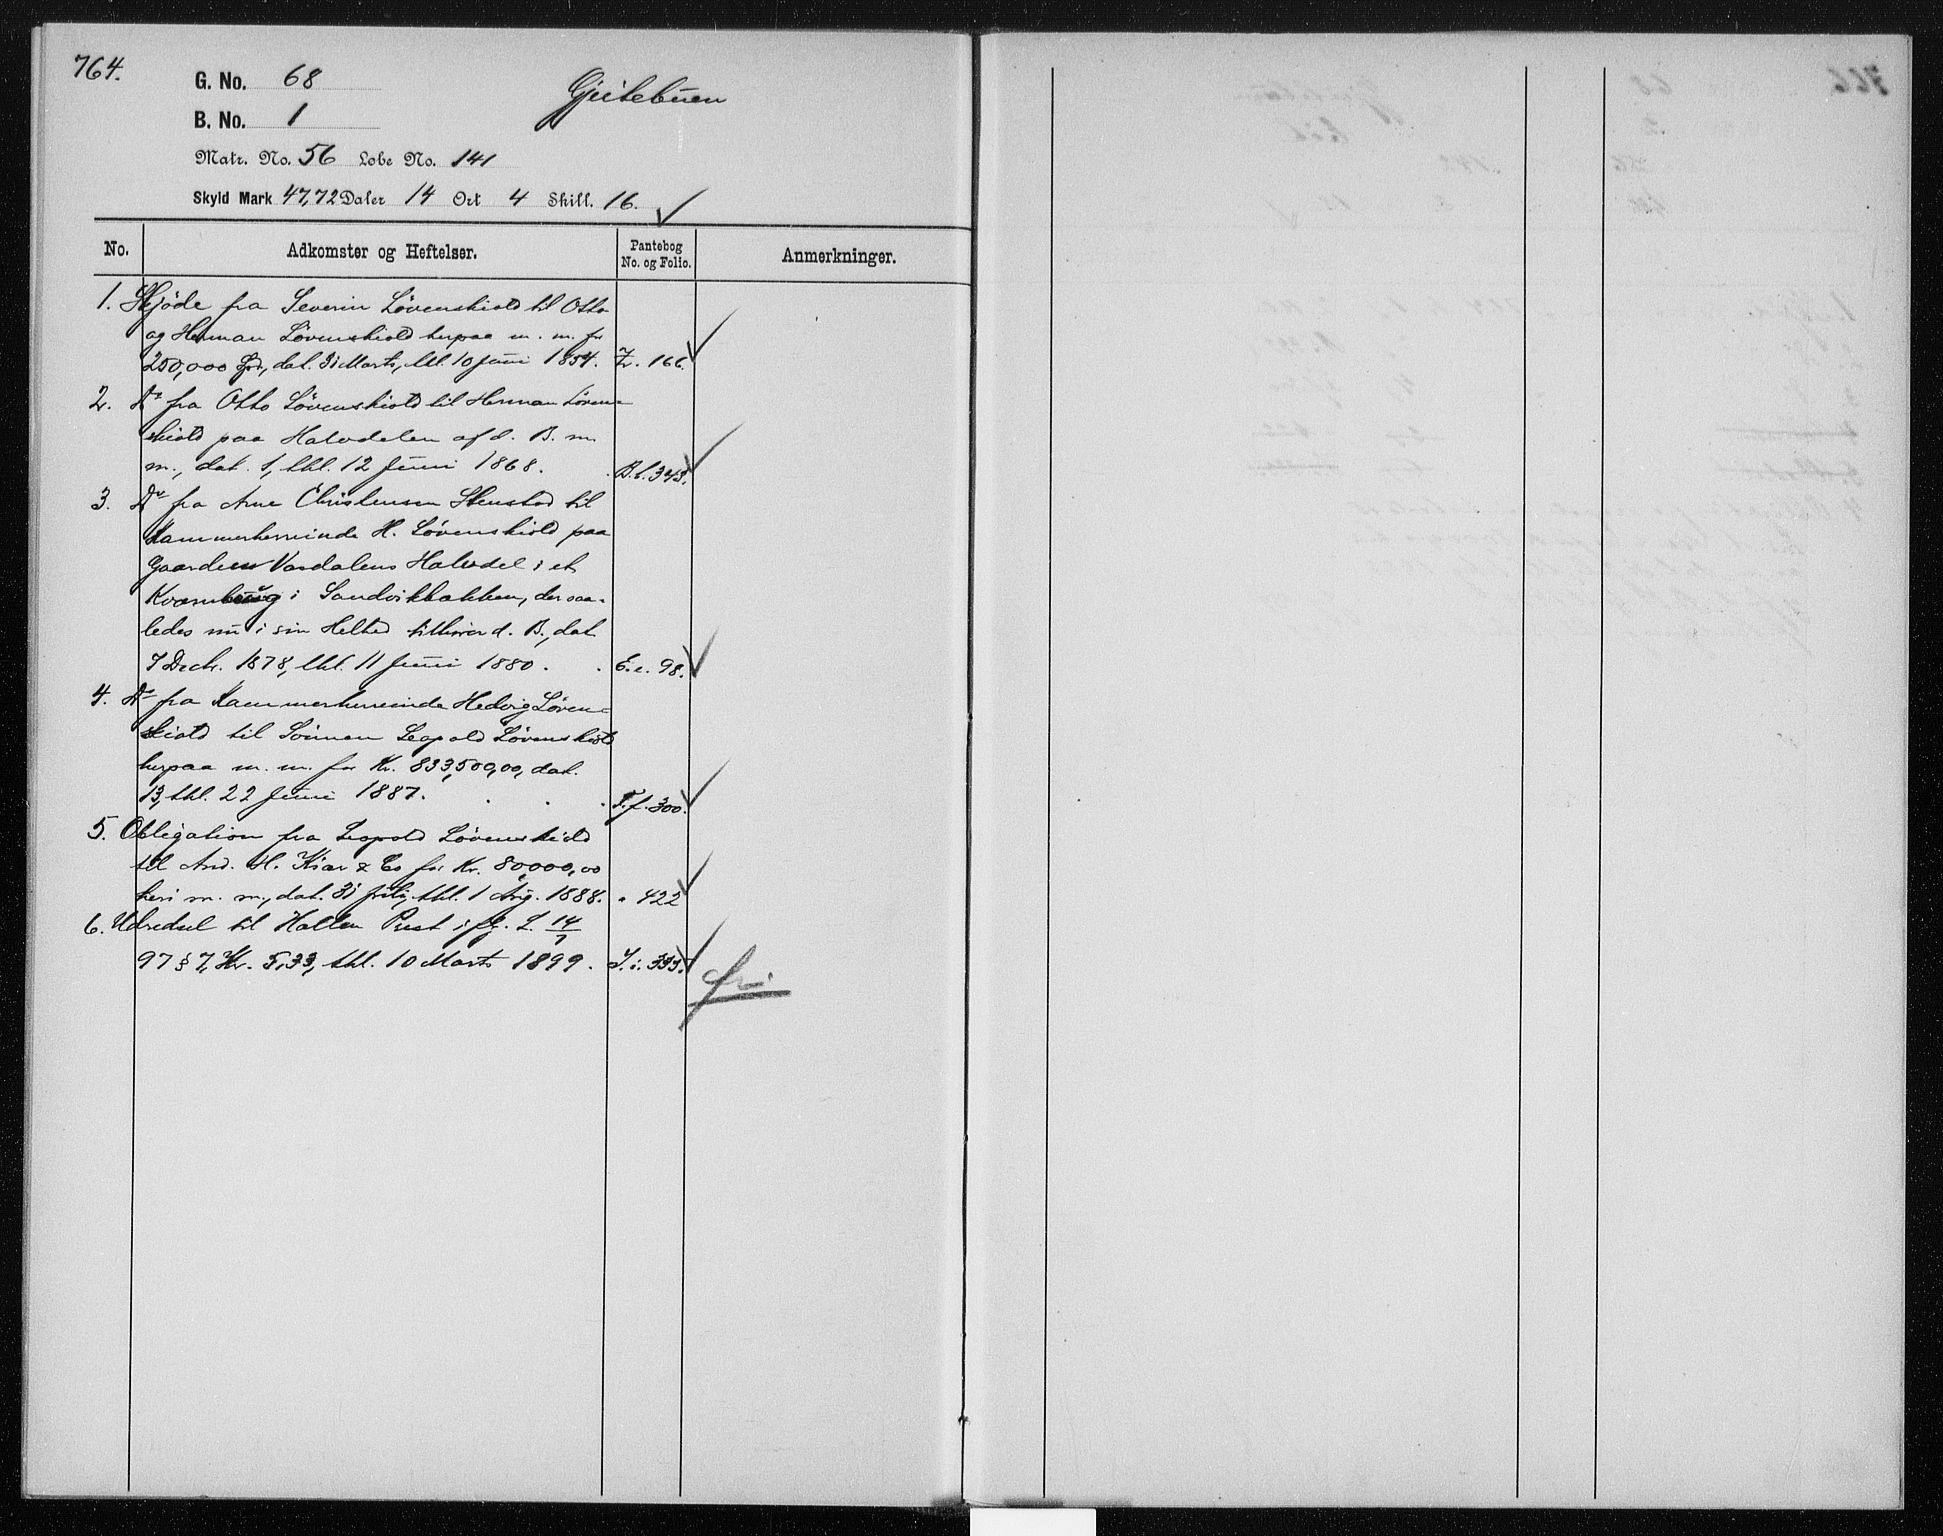 764.
G. No. 68
Gjeitebuen
B. No. 1
Matr. No. 56 Løbe No. 141
Skyld Mark 47,72 Daler 14 Ort 4 Skill. 16.
No. Adkomster og Heftelser. Pantebog No. og Folio. Anmerkninger.
1. Skjöde fra Severin Lövenskiold til Otto
og Herman Lövenskiold herpaa m. m. for
250,000 Spd., dat. 31 Marts, thl. 10 Juni 1854. Z. 166.
2. Do fra Otto Lövenskiold til Herman Löven=
skiold paa Halvdelen af d. B. m.
m., dat. 1, thl. 12 Juni 1868. B.b. 343.
3. Do fra Arne Christensen Stenstad til
Kammerherreinde H. Lövenskiold paa
Gaarden Vardalens Halvdel i et
i Sandviksbækken, der saa-
ledes nu i sin Helhed tilhörer d. B., dat.
7 Decbr. 1878, thl. 11 Juni 1880. E.e. 98.
4. Do fra Kammerherreinde Hedvig Löven=
skiold til Sönnen Leopold Lövenskiold
herpaa m. m. for Kr. 833,500,00, dat.
13, thl. 22 Juni 1887. F.f. 300.
5. Obligation fra Leopold Lövenskiold
til And. H. Kiær & Co for Kr. 80,000,00
heri m. m., dat. 31 Juli, thl. 1 Aug. 1888. " 422
6. Udredsel til Holden Prest ifg. L. 14/7
97 § 7, Kr. 5,33, thl. 10 Marts 1899. I.i. 333.
fri